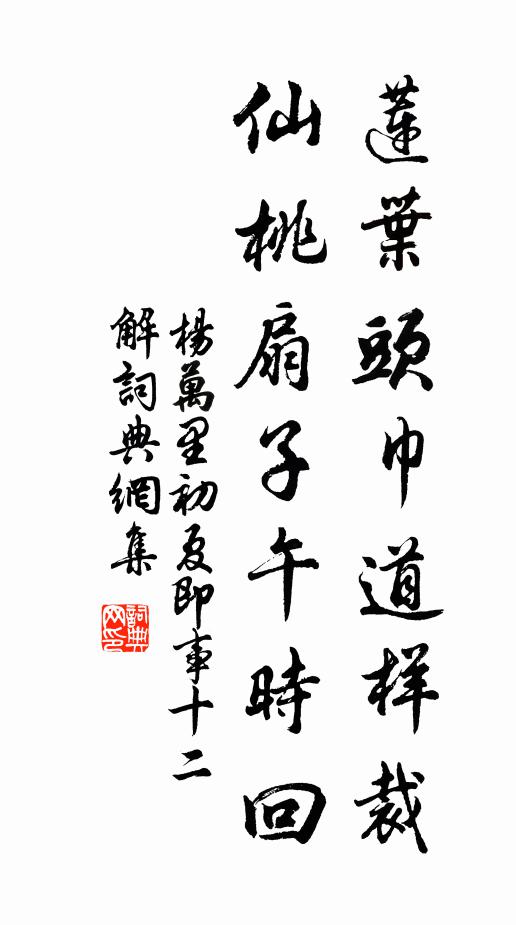 蓮葉頭巾道样裁
仙桃扇子午時回
楊萬里初夏即事十二
解詞典網集
詞典网印